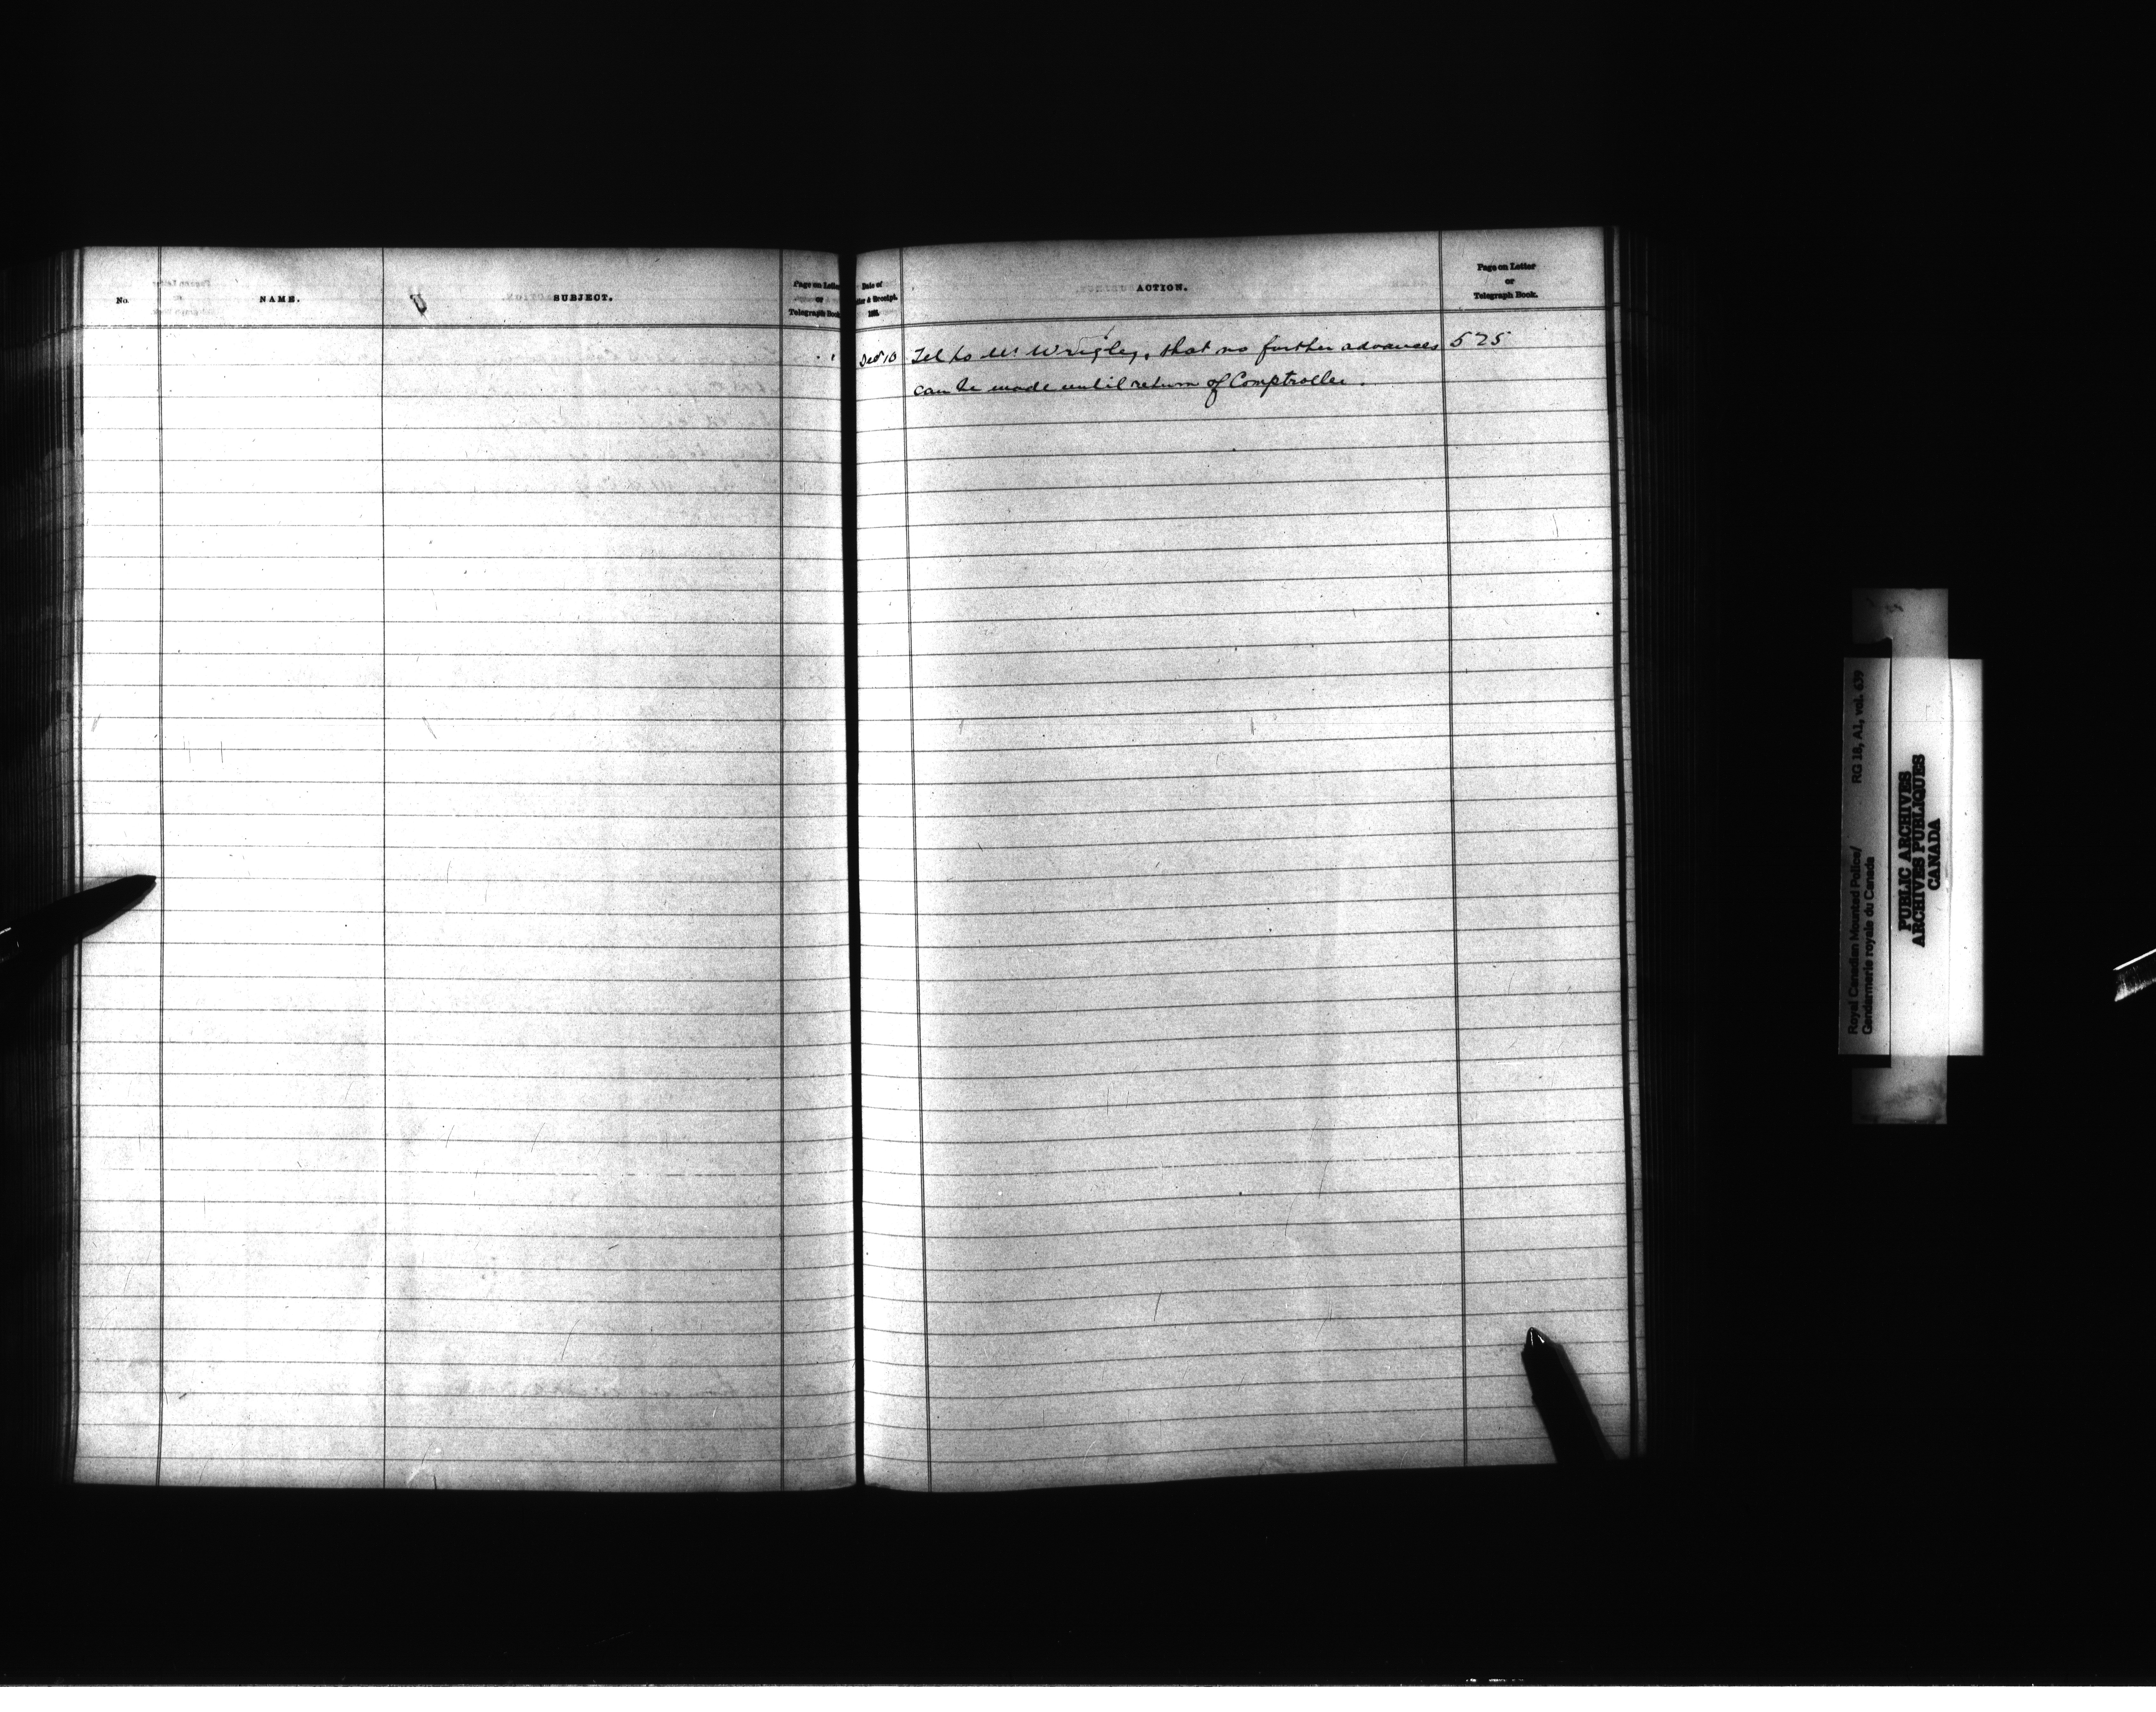 No.
NAME.
SUBJECT.
Page on Letter
or
Telegraph Book.
Date of
Letter & Receipt.
188
ACTION.
Page on Letter
or
Telegraph Book.
Dec 10 Tel to Mr Wrigley, that no further advances 525
can be made until return of Comptroller.
Royal Canadian Mounted Police/ RG 18, A1, vol. 639
Gendarmerie royale du Canada
PUBLIC ARCHIVES
ARCHIVES PUBLIQUES
CANADA